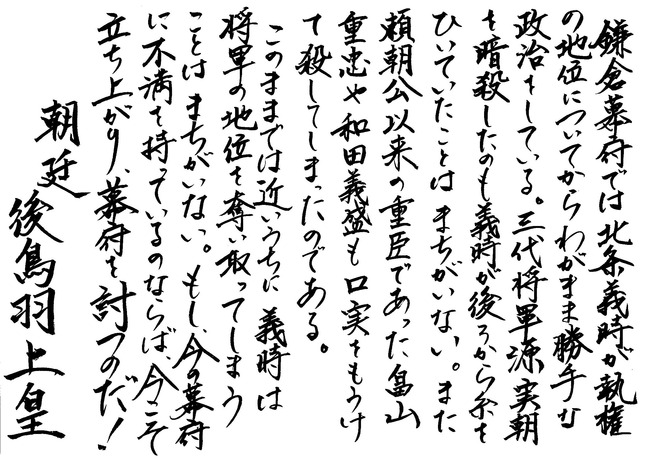 鎌倉幕府では北条義時が執権
の地位についてからわがまま勝手な
政治をしている。三代将軍源実朝
を暗殺したのも義時が後ろから糸を
ひいていたことはまちがいない。また
頼朝公以来の重臣であった畠山
重忠や和田義盛も口実をもうけ
て殺してしまったのである。
このままでは近いうちに義時は
将軍の地位を奪い取ってしまう
ことはまちがいない。もし、今の幕府
に不満を持っているのならば、今こそ
立ち上がり、幕府を討つのだ！
朝廷
後鳥羽上皇